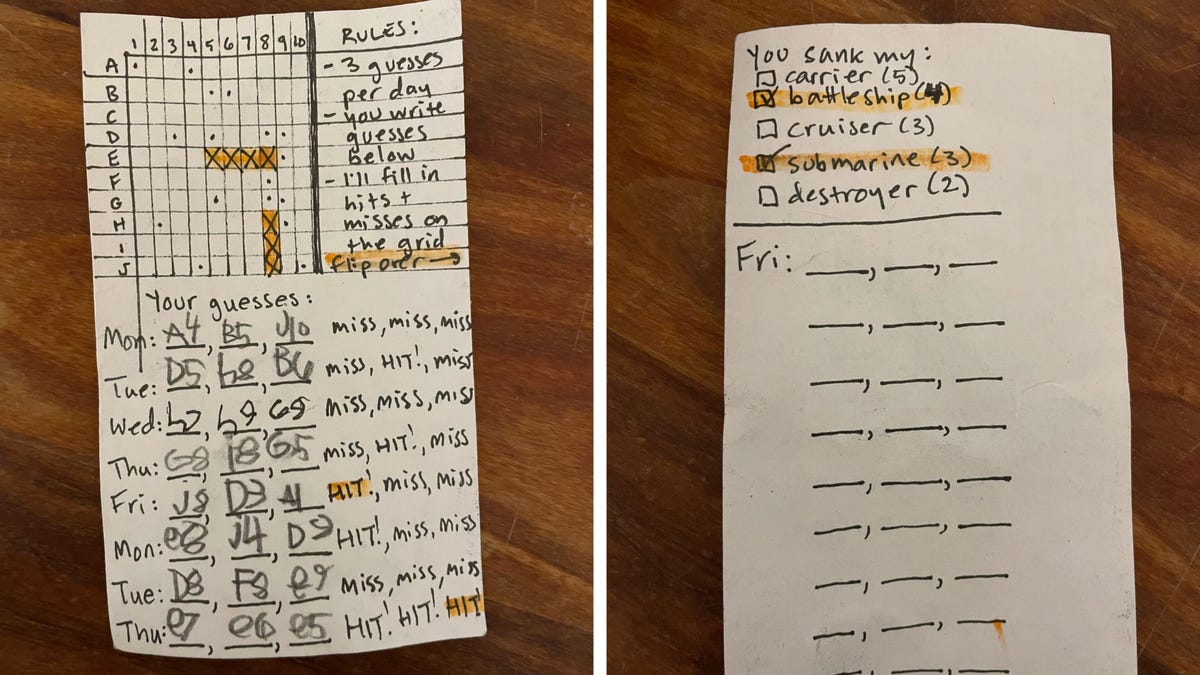 1 2 3 4 5 6 7 8 9 10
A
B
C
D
E
F
G
H
I
J
RULES:
- 3 guesses
per day
- you write
guesses
below
- I'll fill in
hits +
misses on
the grid
flip over →
Your guesses:
Mon: A4, B5, J10 miss, miss, miss
Tue: D5, h8, B6 miss, HIT!, miss
Wed: h2, h9, G9 miss, miss, miss
Thu: G8, i8, G5 miss, HIT!, miss
Fri: J8, D3, A1 HIT!, miss, miss
Mon: e8, J4, D9 HIT!, miss, miss
Tue: D8, F8, e9 miss, miss, miss
Thu: e7, e6, e5 HIT! HIT! HIT!
You sank my:
carrier (5)
battleship (4)
cruiser (3)
submarine (3)
destroyer (2)
Fri: